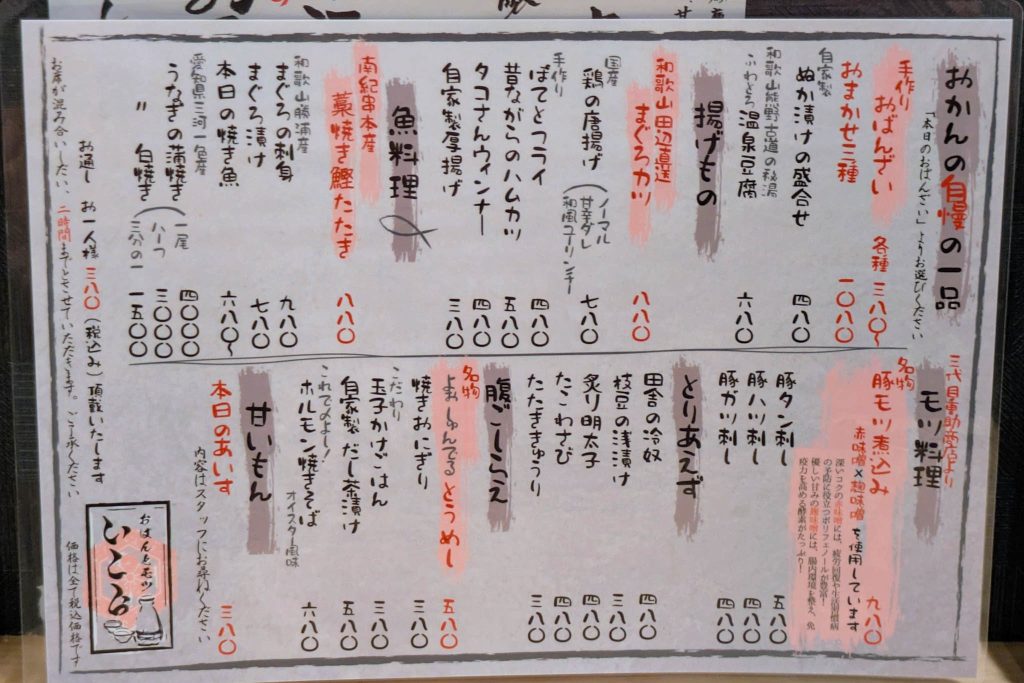 おかんの自慢の一品
「本日のおばんざい」よりお選びください
手作り
おばんざい 各種 三八〇〜
おまかせ三種 一〇八〇
自家製
ぬか漬けの盛合せ 四八〇
和歌山熊野古道の秘湯
ふわとろ 温泉豆腐 六八〇
揚げもの
和歌山田辺直送
まぐろカツ 八八〇
国産
鶏の唐揚げ 七八〇
(ノーマル
甘辛ダレ
和風ユーリンチー
手作り
ぽてとフライ 四八〇
昔ながらのハムカツ 五八〇
タコさんウィンナー 四八〇
自家製厚揚げ 三八〇
魚料理
南紀串本産
藁焼き鰹たたき 八八〇
和歌山勝浦産
まぐろの刺身 九八〇
まぐろ漬け 七八〇
本日の焼き魚 六八〇〜
愛知県三河一色産
うなぎの蒲焼き
〃 白焼き
(一尾 四〇〇〇
ハーフ 三〇〇〇
三分の一 一五〇〇
三代目重助商店より
モツ料理
名物
豚モツ煮込み 九八〇
赤味噌×麹味噌 を使用しています
深いコクの赤味噌には、疲労回復や生活習慣病
の予防に役立つポリフェノールが豊富!
優しい甘みの麹味噌には、腸内環境を整え、免
疫力を高める酵素がたっぷり!
豚タン刺し 五八〇
豚ハツ刺し 四八〇
豚ガツ刺し 四八〇
とりあえず
田舎の冷奴 四八〇
枝豆の浅漬け 三八〇
炙り明太子 四八〇
たこわさび 四八〇
たたききゅうり 三八〇
腹ごしらえ
名物
よぉしゅんでる とうめし 五八〇
焼きおにぎり 三八〇
こだわり
玉子かけごはん 三八〇
自家製だし茶漬け 五八〇
これでのよし!
ホルモン焼きそば 六八〇
オイスター風味
甘いもん
本日のあいす 三八〇
内容はスタッフにお尋ねください
お通し お一人様 三八〇(税込み)頂戴いたします
お席が混み合いしだい、二時間までとさせていただきます。ご了承ください
おばんとモツ
いこら
価格は全て税込価格です